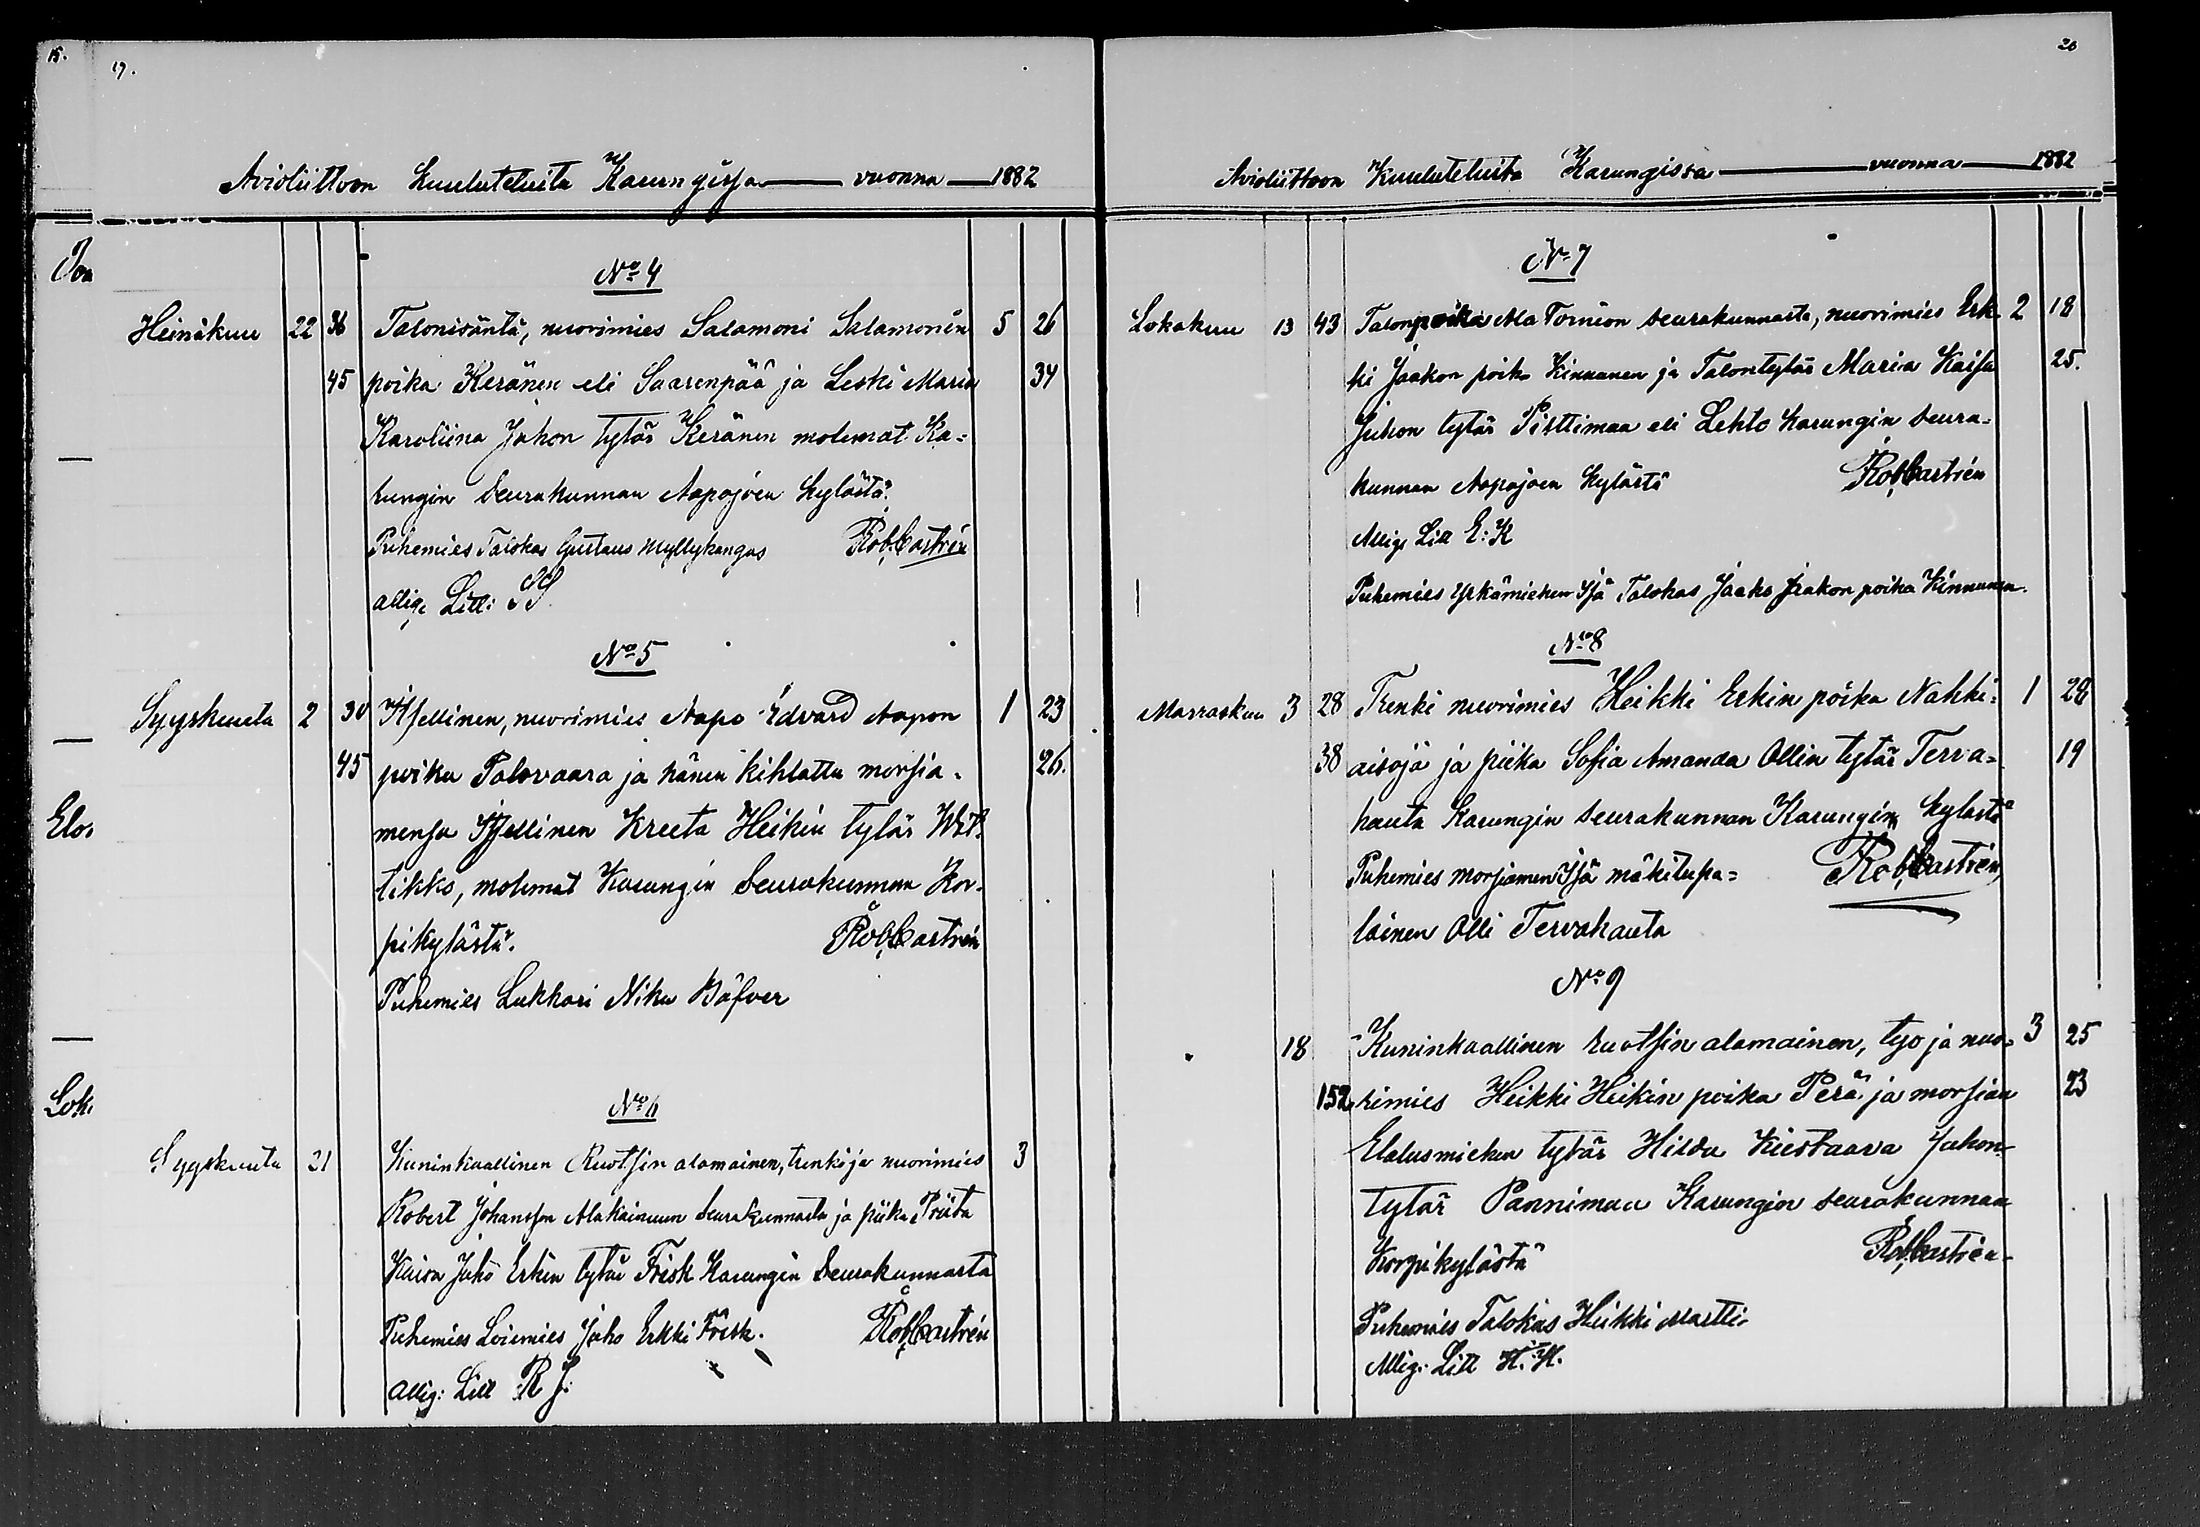 15.
19.
Avioliittoon kuulutetuita Karungissa vuonna 1882
No 4
Heinäkuu 22 36 Talonisäntä, nuorimies Salamoni Salamonin 5 26
45 poika Keränen eli Saarenpää ja Leski Maria 34
Karoliina Juhon tytär Keränen molemat Ka=
rungin Seurakunnan Aapajoen kylästä.
Puhemies Talokas Gustaus Myllykangas Rob. Castrén
allig. Litt: SS
No 5
Syyskuuta 2 30 Itsellinen, nuorimies Aapo Edvard Aapon 1 23
45 poika Palovaara ja hänen kihlattu morsia- 26.
mensa Itsellinen Kreeta Heikin tytär
tikko, molemat Karungin Seurakunnan Kor-
pikylästä. Rob. Castrén
Puhemies Lukkari Niku Bäfver
No 6
Syyskuuta 21 Kuninkaallinen Ruotsin alamainen, trenki ja nuorimies 3
Robert Johansson Alakainuun Seurakunnasta ja piika Priita
Kaisa Juho Erkin tytär Frisk Karungin Seurakunnasta
Puhemies Loismies Juho Erkki Frisk. Rob. Castrén
allig: Litt R J:
Joa
Elo
Lok
20
Avioliittoon Kuulutetuita Karungissa vuonna 1882
No 7
Lokakuu 13 43 Talonpoika Ala Tornion seurakunnasta, nuorimies Erk- 2 18
ki Jaakon poika Kinnunen ja Talontytär Maria Kaisa 25.
Juhon tytär Pisttimaa eli Lehto Karungin Seura=
kunnan Aapajoen kylästä Rob. Castrén
Allig. Litt E: K
Puhemies Yrkämiehen Isä Talokas Jaako Jaakon poika Kinnunen.
No 8
Marraskuu 3 28 Trenki nuorimies Heikki Erkin poika Nahki= 1 28
38 aisoja ja piika Sofia Amanda Ollin tytär Terva= 19
hauta Karungin seurakunnan Karungin kylästä
Puhemies morsiamen Isä mäkitupa= Rob. Castrén
lainen Olli Tervahauta
No 9
18 Kuninkaallinen ruotsin alamainen, työ ja nuo= 3 25
152 rimies Heikki Heikin poika Perä ja morsian 23
Elatusmiehen tytär Hilda Kiestaava Juhon
tytär Pannimaa Karungin seurakunnan
Korpikylästä Rob. Castrén
Puhemies Talokas Heikki Martti
Allig: Litt H. H.